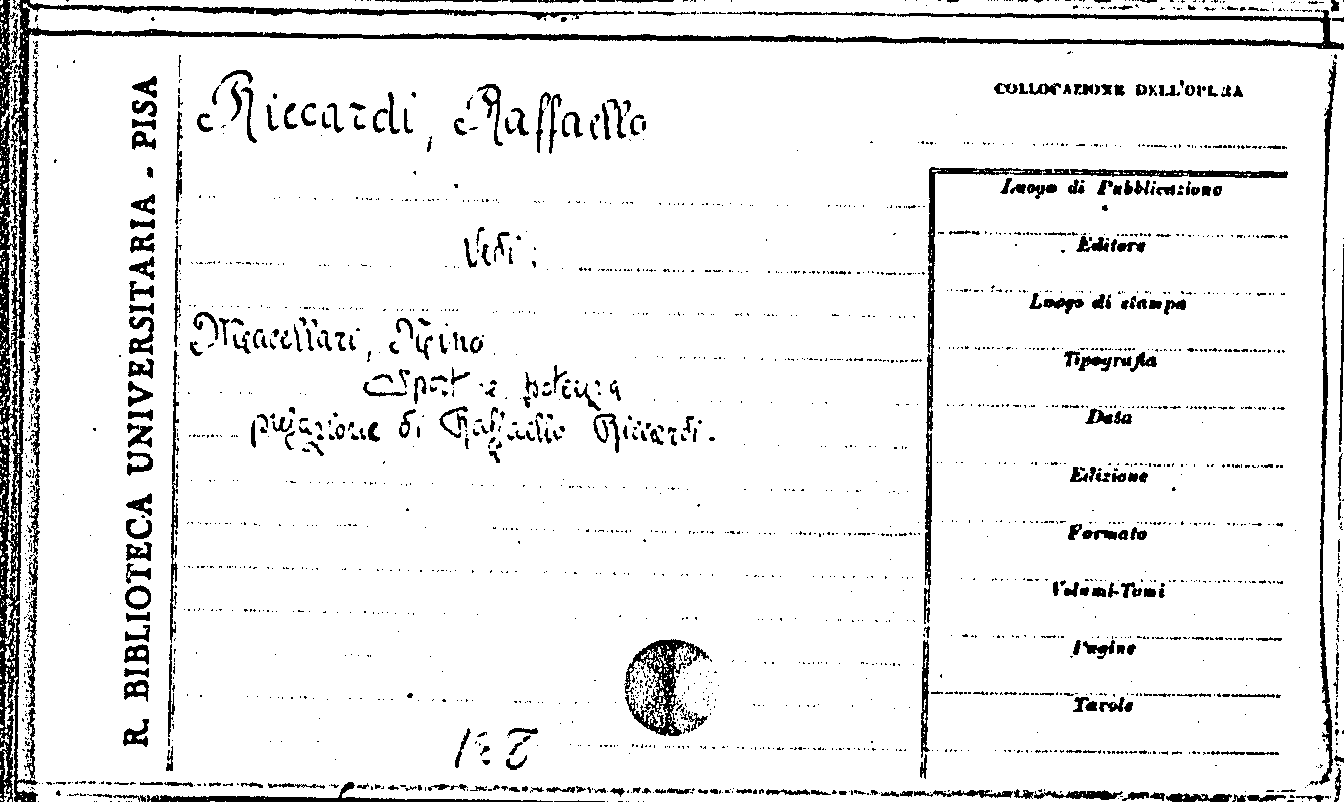 R. BIBLIOTECA UNIVERSITARIA - PISA
Riccardi, Raffaello
Vedi:
Macellari, Nino
Sport e potenza
prefazione di Raffaello Riccardi.
COLLOCAZIONE DELL'OPERA
Luogo di Pubblicazione
Editore
Luogo di stampa
Tipografia
Data
Edizione
Formato
Volumi-Tomi
Pagine
Tavole